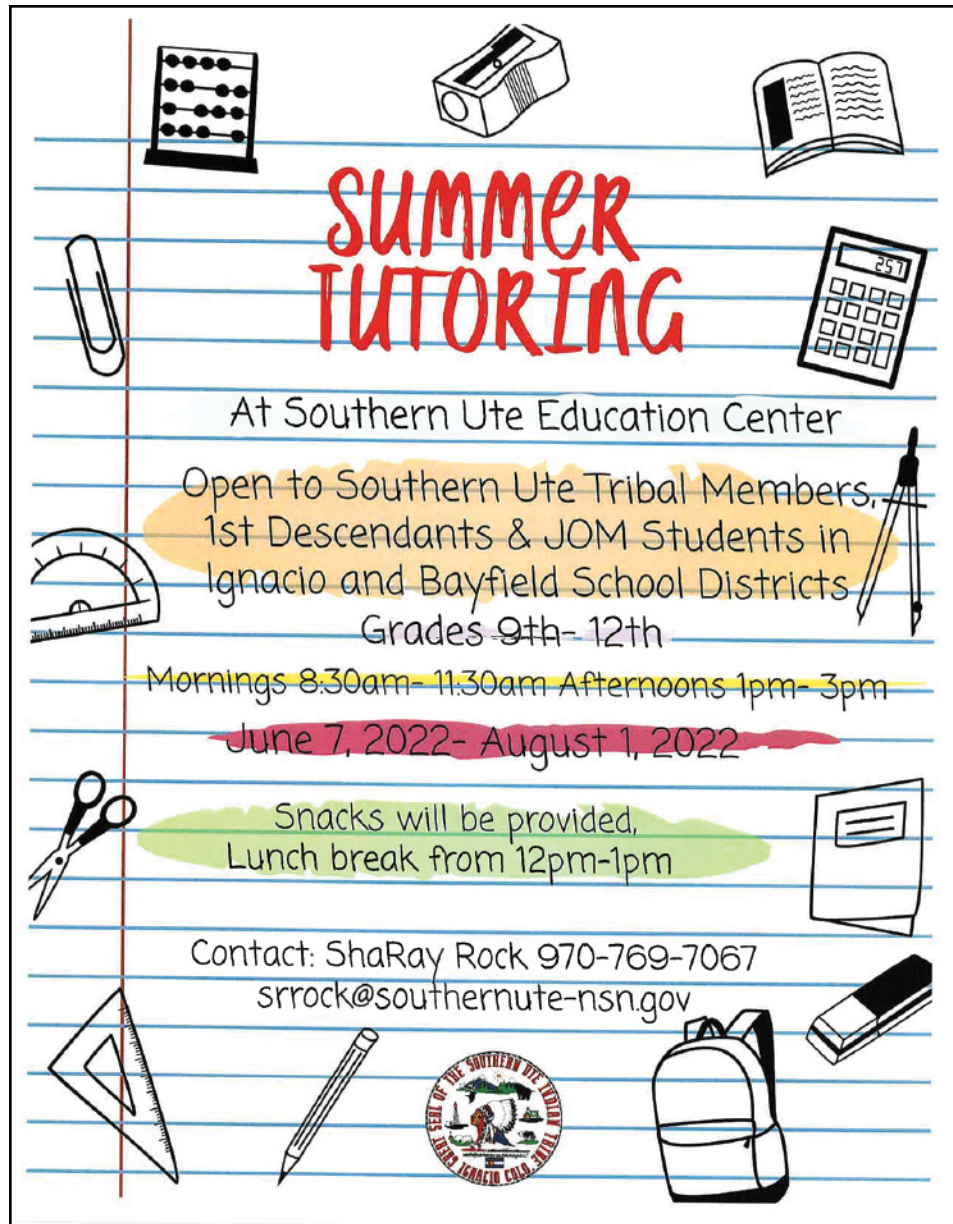 257
SUMMER
TUTORING
At Southern Ute Education Center
Open to Southern Ute Tribal Members,
1st Descendants & JOM Students in
Ignacio and Bayfield School Districts
Grades 9th- 12th
Mornings 8:30am- 11:30am Afternoons 1pm- 3pm
June 7, 2022- August 1, 2022
Snacks will be provided,
Lunch break from 12pm-1pm
Contact: ShaRay Rock 970-769-7067
srrock@southernute-nsn.gov
GREAT SEAL OF THE SOUTHERN UTE INDIAN TRIBE
IGNACIO COLO.